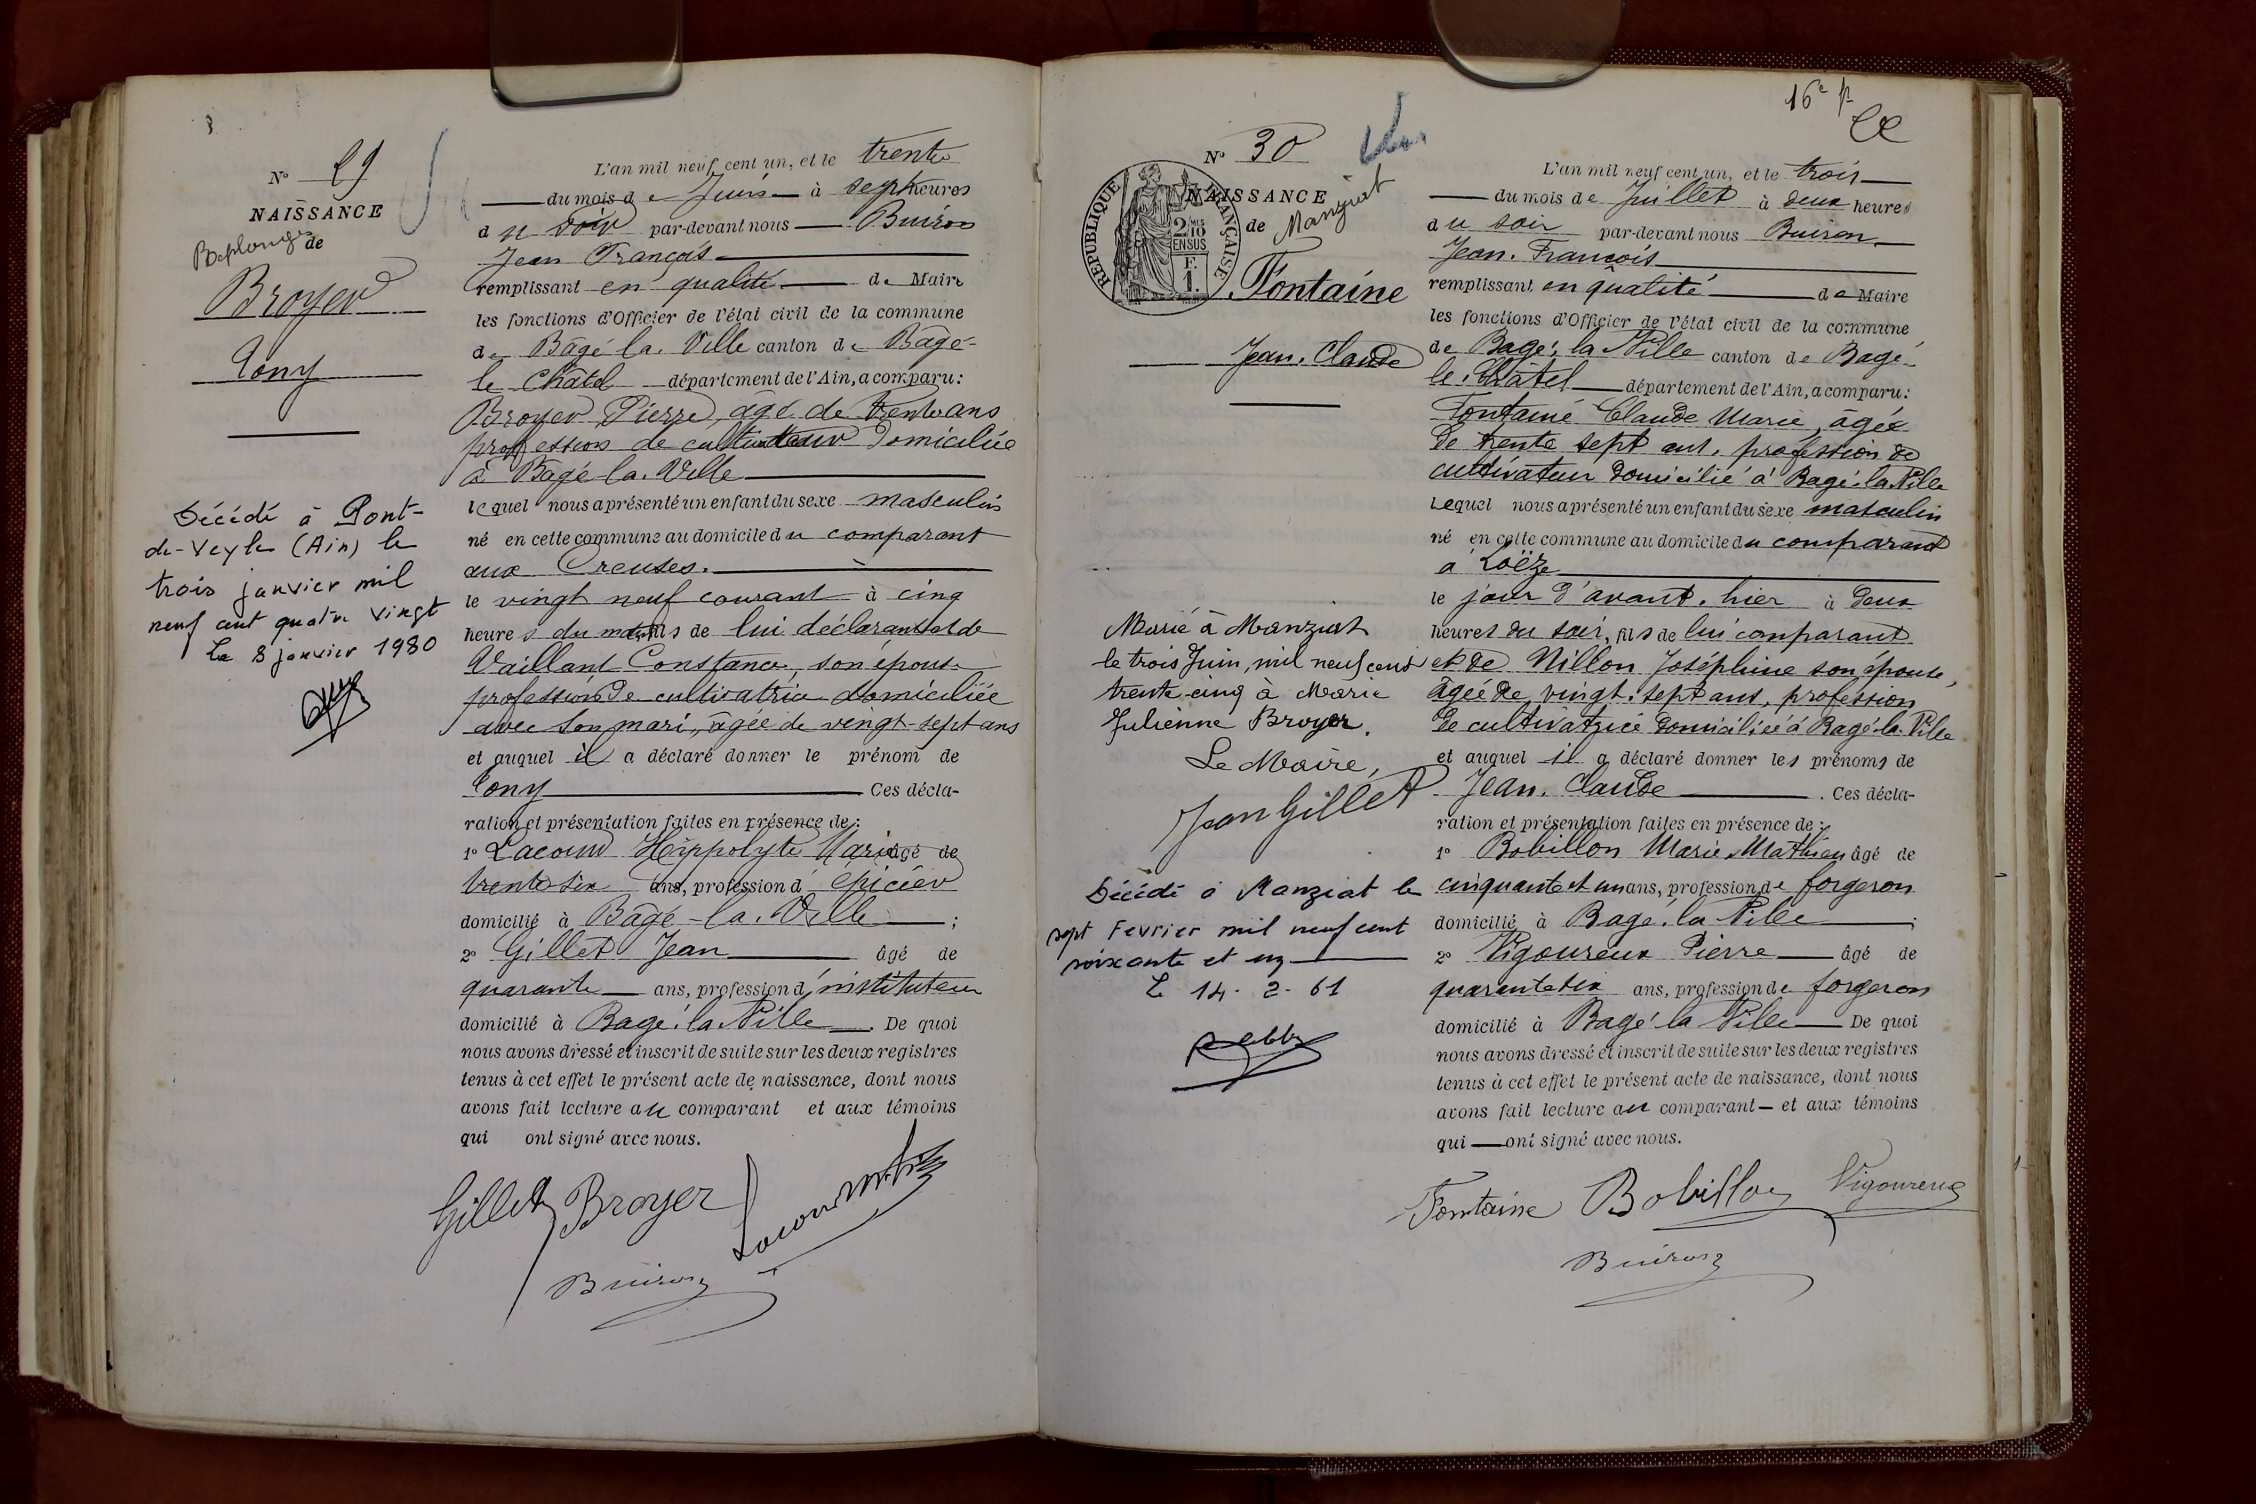 N° 29
NAISSANCE
Replonges
de
Broyer
Tony
Décédé à Pont-
de-Veyle (Ain) le
trois janvier mil
neuf cent quatre vingt
Le 8 janvier 1980
L'an mil neuf cent un, et le trente
du mois de Juin à sept heures
du soir par-devant nous Buiron
Jean François
remplissant en qualité de Maire
les fonctions d'Officier de l'état civil de la commune
de Bâgé la Ville canton de Bâgé-
le Châtel département de l'Ain, a comparu:
Broyer Pierre, âgé de trente ans
profession de cultivateur domicilié
à Bâgé-la-Ville
lequel nous a présenté un enfant du sexe masculin
né en cette commune au domicile du comparant
aux Creuses.
le vingt neuf courant à cinq
heures du matin fils de lui déclarant et de
Vaillant Constance, son épouse
profession de cultivatrice domiciliée
avec son mari, âgée de vingt-sept ans
et auquel il a déclaré donner le prénom de
Tony Ces décla-
ration et présentation faites en présence de:
1° Lacour Hippolyte Marie âgé de
trente six ans, profession d'épicier
domicilié à Bâgé-la-Ville ;
2° Gillet Jean âgé de
quarante ans, profession d'instituteur
domicilié à Bagé-la-Ville. De quoi
nous avons dressé et inscrit de suite sur les deux registres
tenus à cet effet le présent acte de naissance, dont nous
avons fait lecture au comparant et aux témoins
qui ont signé avec nous.
Gillet Broyer Lacour
Buiron
16e
N° 30
RÉPUBLIQUE FRANÇAISE
2/10 EN SUS
F. 1.
NAISSANCE
de Manziat
Fontaine
Jean-Claude
Marié à Manziat
le trois Juin, mil neuf cent
trente-cinq à Marie
Julienne Broyer.
Le Maire,
Jean Gillet
Décédé à Manziat le
sept Fevrier mil neuf cent
soixante et un
Le 14-2-61
L'an mil neuf cent un, et le trois
du mois de Juillet à deux heures
du soir par-devant nous Buiron
Jean-François
remplissant en qualité de Maire
les fonctions d'Officier de l'état civil de la commune
de Bagé-la-Ville canton de Bagé-
le-Châtel département de l'Ain, a comparu:
Fontaine Claude Marie, âgé
de trente sept ans, profession de
cultivateur domicilié à Bagé-la-Ville
Lequel nous a présenté un enfant du sexe masculin
né en cette commune au domicile du comparant
à Loëze
le jour d'avant-hier à deux
heures du soir, fils de lui comparant
et de Nillon Joséphine son épouse,
âgée de vingt-sept ans, profession
de cultivatrice domiciliée à Bagé-la-Ville
et auquel il a déclaré donner les prénoms de
Jean-Claude. Ces décla-
ration et présentation faites en présence de:
1° Bobillon Marie Mathieu âgé de
cinquante et un ans, profession de forgeron
domicilié à Bagé-la-Ville ;
2° Vigoureux Pierre âgé de
quarante six ans, profession de forgeron
domicilié à Bagé-la-Ville De quoi
nous avons dressé et inscrit de suite sur les deux registres
tenus à cet effet le présent acte de naissance, dont nous
avons fait lecture au comparant et aux témoins
qui ont signé avec nous.
Fontaine Bobillon Vigoureux
Buiron